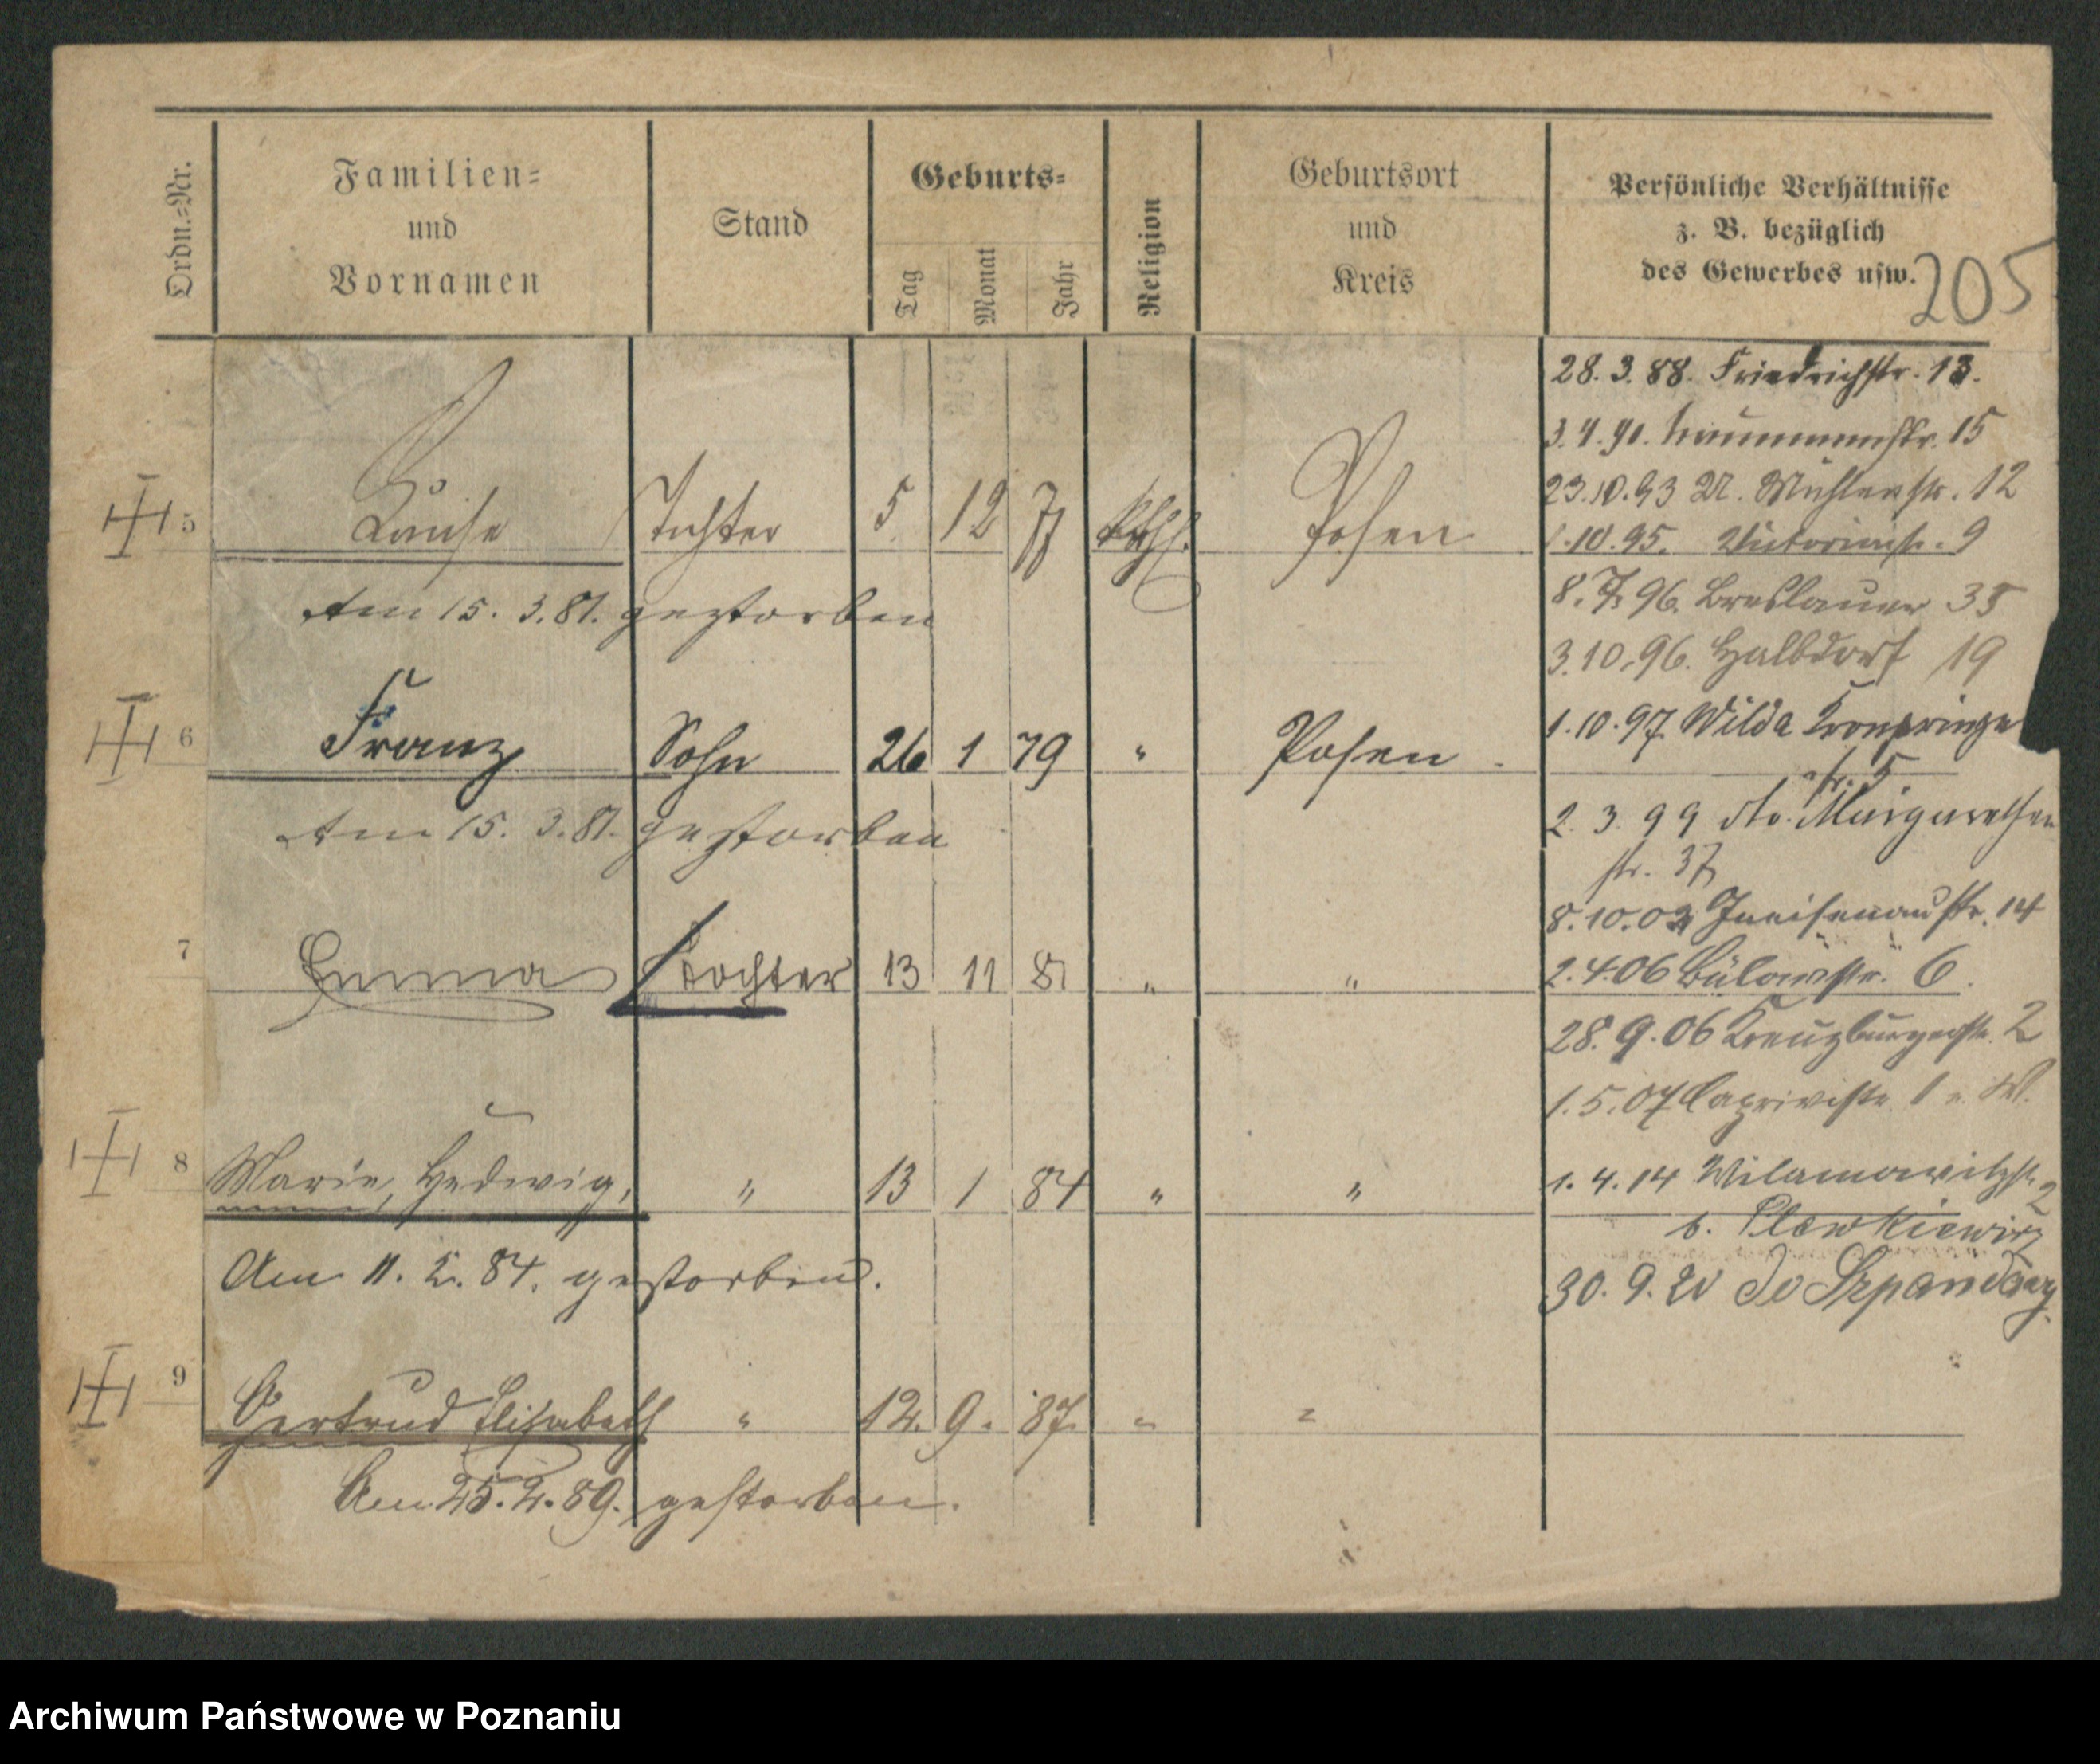 Ordn.=Nr.
Familien=
und
Vornamen
Stand
Geburts=
Tag
Monat
Jahr
Religion
Geburtsort
und
Kreis
Persönliche Verhältnisse
z. B. bezüglich
des Gewerbes usw.
205
5 Louise Tochter 5 12 77 kath. Posen
Am 15. 3. 81. gestorben
6 Franz Sohn 26 1 79 " Posen
Am 15. 3. 81. gestorben
7 Emma Tochter 13 11 81 " "
8 Marie, Hedwig, " 13 1 84 " "
Am 11. 2. 84. gestorben.
9 Gertrud Elisabeth " 12. 9. 87. " "
Am 25. 2. 89. gestorben.
28. 3. 88. Friedrichstr. 13.
Naumannstr. 15
23.10.93 Mühlenstr. 12
1.10.95. Victoriastr. 9
8. 7. 96. Breslauer 35
3.10.96. Halbdorf 19
1.10.97. Wilda Kronprinzen
str. 5
2. 3. 99 Margarethen
str. 37
8.10.02 Gneisenaustr. 14
2.4.06 Bülowstr. 6.
28. 9. 06 Kreuzburgerstr. 2
1. 5. 07 Caprivistr. 1
1. 4. 14 Wilamowitzstr. 2
b. Plewkiewicz
30. 9. 20 do Szpandawy.
Archiwum Państwowe w Poznaniu